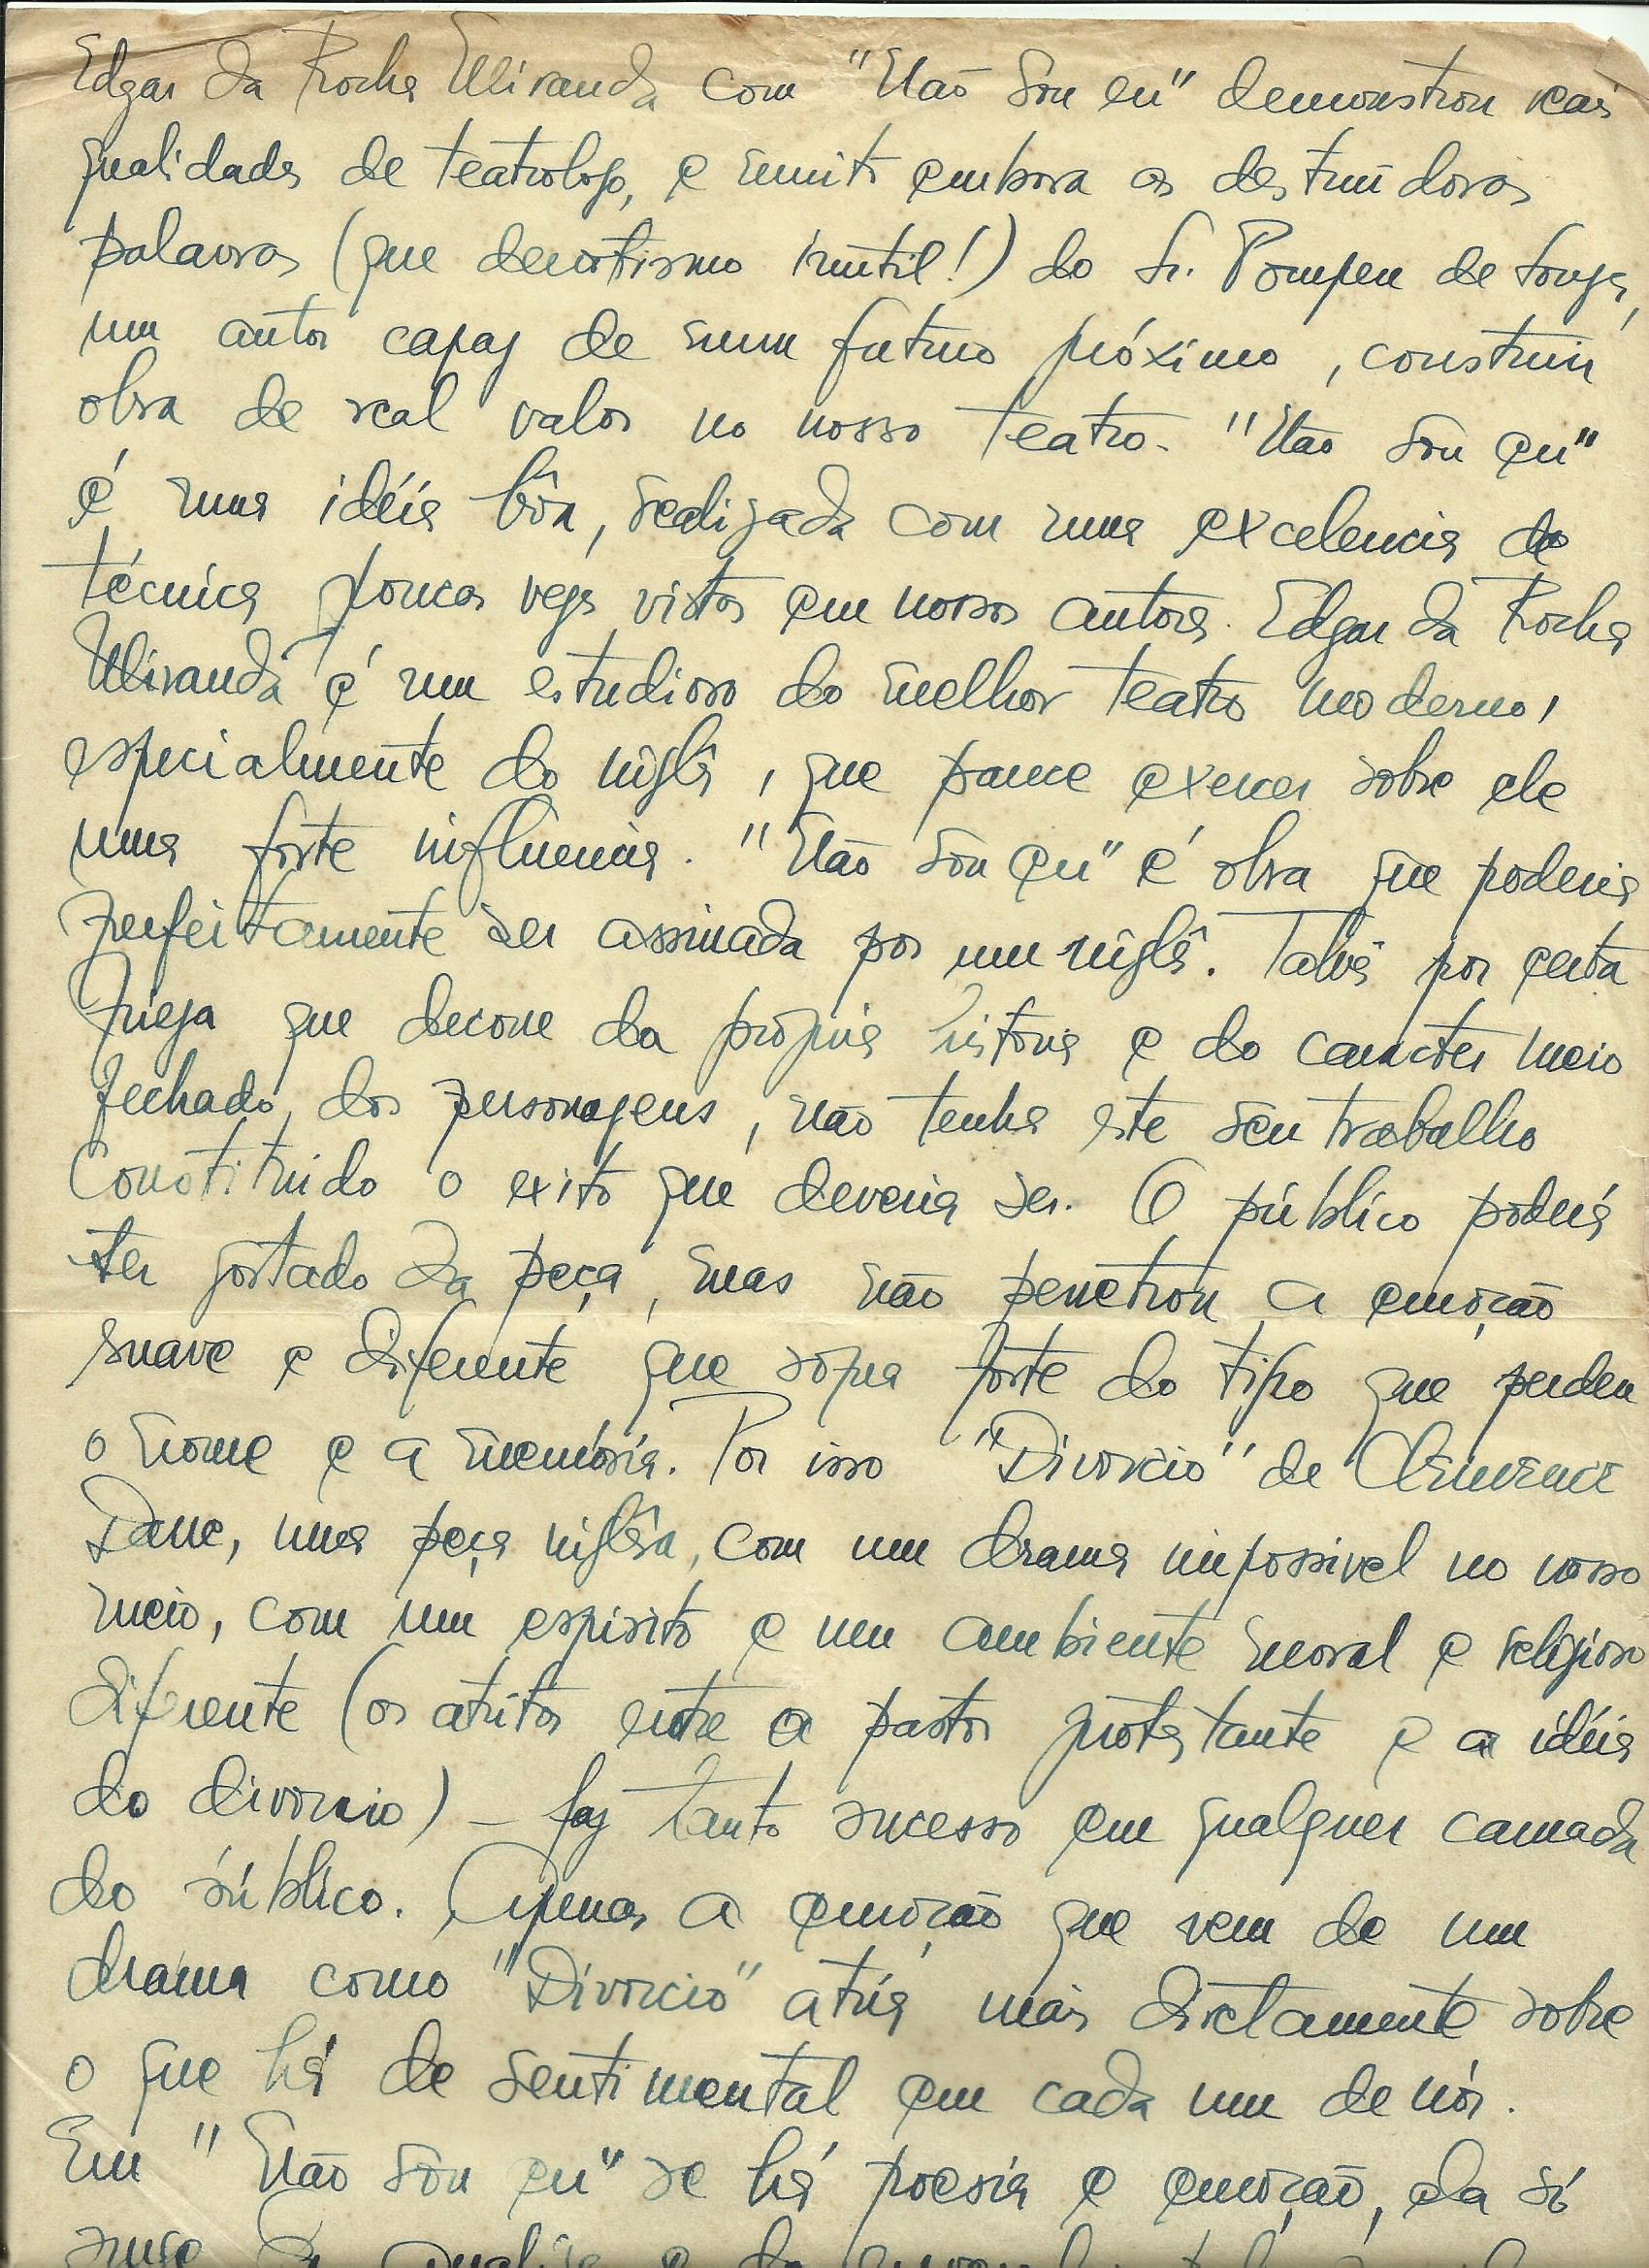 Edgar da Rocha Miranda com "Não sou eu" demonstrou reais
qualidades de teatrologo, e muito embora as destruidoras
palavras (que derrotismo inútil!) do Sr. Pompeu de Souza,
um autor capaz de num futuro próximo, construir
obra de real valor no nosso teatro. "Não sou eu"
é uma idéia bôa, realizada com uma excelencia de
técnica poucas vezes vistas em nossos autores. Edgar da Rocha
Miranda é um estudioso do melhor teatro moderno,
especialmente do inglês, que parece exercer sobre ele
uma forte influencia. "Não sou eu" é obra que poderia
perfeitamente ser assinada por um inglês. Talvês por certa
frieza que decorre da própria historia e do caracter meio
fechado dos personagens, não tenha este seu trabalho
constituido o exito que deveria ser. O público poderá
ter gostado da peça, mas não penetrou a emoção
suave e diferente que sopra forte do tipo que perdeu
o nome e a memória. Por isso "Divorcio" de Clemence
Dane, uma peça inglêsa, com um drama impossivel no nosso
meio, com um espirito e um ambiente moral e religioso
diferente (os atritos entre o pastor protestante e a idéia
do divorcio) – faz tanto sucesso em qualquer camada
do público. Apenas a emoção que vem de um
drama como "Divorcio" atúa mais diretamente sobre
o que há de sentimental em cada um de nós.
Em "Não sou eu" se há poesia e emoção, ela só
surge da